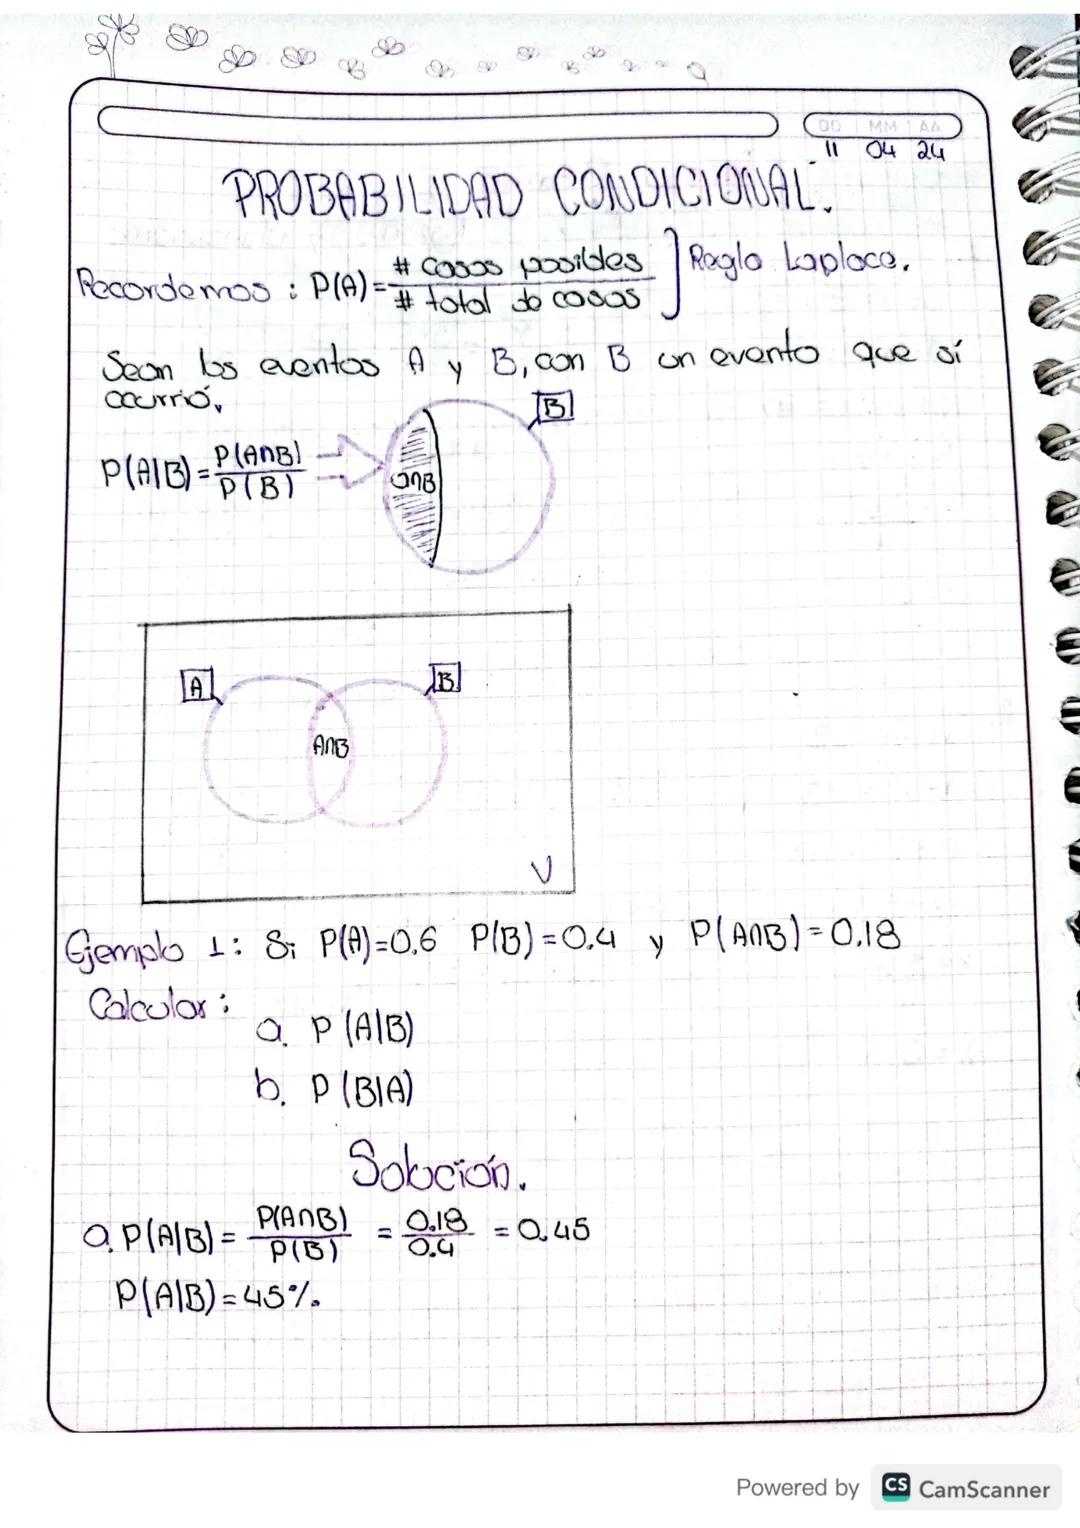 DD MM AA
11 04 24
PROBABILIDAD CONDICIONAL.
Recordemos : P(A)= # casos posibles / # total de casos ] Regla Laplace.
Sean los eventos A y B, con B un evento que sí
ocurrió,
B
P(A|B) = P(A∩B) / P(B)
∩B
A
B
A∩B
U
Ejemplo 1: Si P(A)=0,6 P(B)=0.4 y P(A∩B)=0.18
Calcular:
a. P(A|B)
b. P(B|A)
Solución.
a. P(A|B) = P(A∩B) / P(B) = 0.18 / 0.4 = 0.45
P(A|B)=45%.
Powered by CS CamScanner